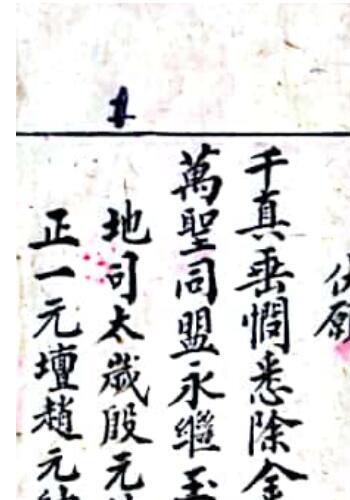 伏願
千真垂憫悉除金
萬聖同盟永繼玉
地司太歲殷元
正一元壇趙元